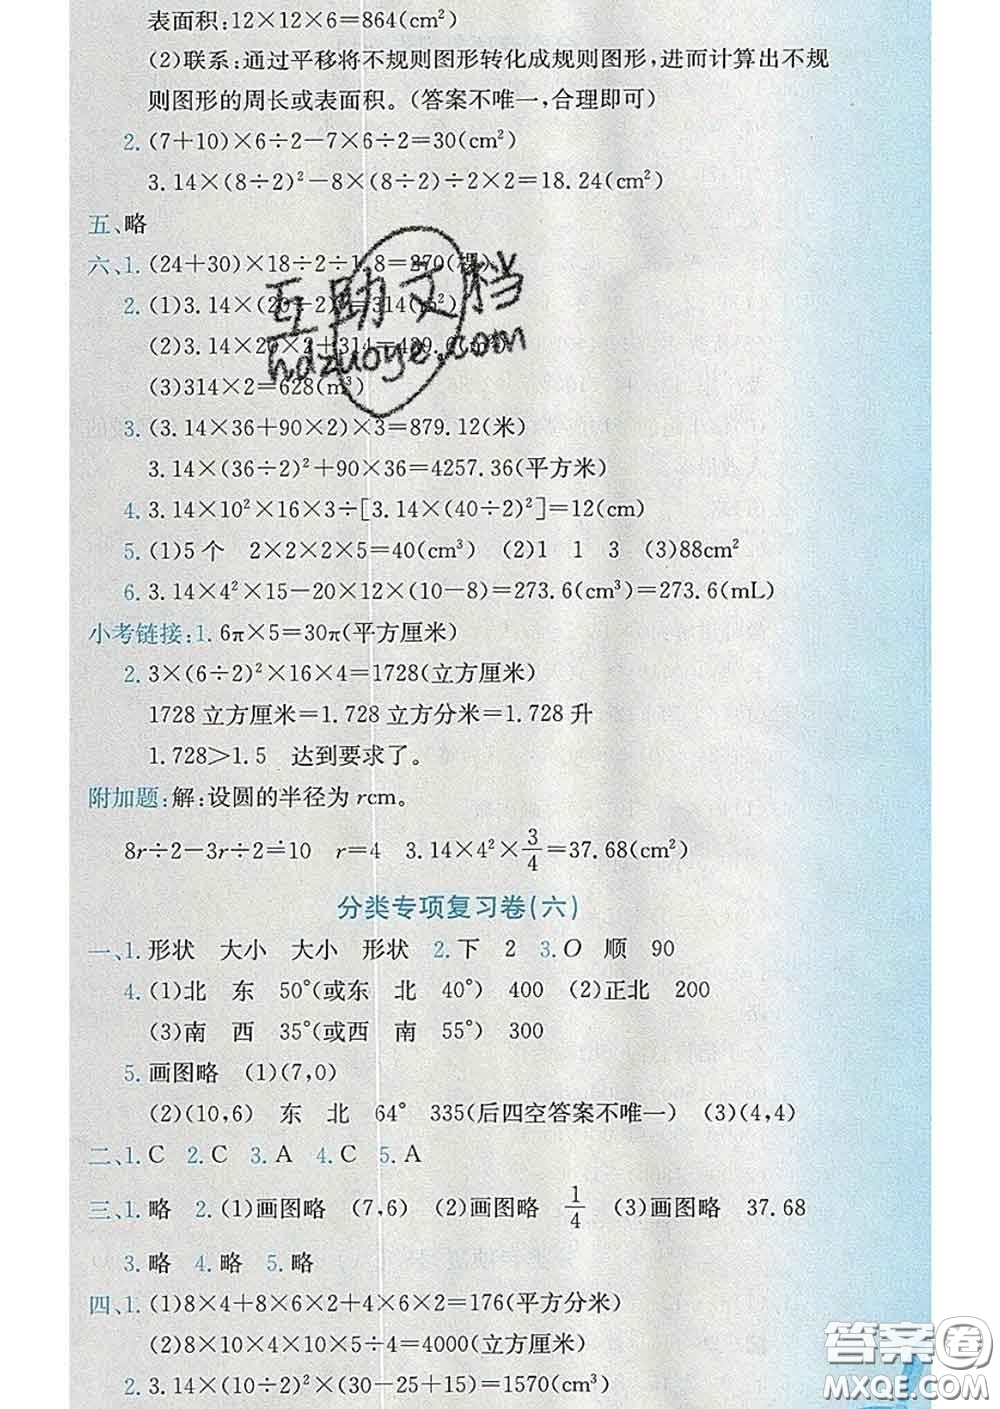 表面积:12×12×6=864(cm²)
(2)联系:通过平移将不规则图形转化成规则图形,进而计算出不规
则图形的周长或表面积。(答案不唯一,合理即可)
2. (7+10)×6÷2-7×6÷2=30(cm²)
3.14×(8÷2)²-8×(8÷2)÷2×2=18.24(cm²)
五、略
六、1. (24+30)×18÷2÷1.8=270(棵)
2. (1)3.14×(20÷2)²=314(m²)
(2)3.14×20×2+314=439.6(m²)
(3)314×2=628(m³)
互助文档
hdzuoye.com
3. (3.14×36+90×2)×3=879.12(米)
3.14×(36÷2)²+90×36=4257.36(平方米)
4. 3.14×10²×16×3÷[3.14×(40÷2)²]=12(cm)
5. (1)5个 2×2×2×5=40(cm³) (2)1 1 3 (3)88cm²
6. 3.14×4²×15-20×12×(10-8)=273.6(cm³)=273.6(mL)
小考链接:1. 6π×5=30π(平方厘米)
2. 3×(6÷2)²×16×4=1728(立方厘米)
1728立方厘米=1.728立方分米=1.728升
1.728>1.5 达到要求了。
附加题:解:设圆的半径为rcm。
8r÷2-3r÷2=10 r=4 3.14×4²×3/4=37.68(cm²)
分类专项复习卷(六)
一、1. 形状 大小 大小 形状 2. 下 2 3. O 顺 90
4. (1)北 东 50°(或东 北 40°) 400 (2)正北 200
(3)南 西 35°(或西 南 55°) 300
5. 画图略 (1)(7,0)
(2)(10,6) 东 北 64° 335(后四空答案不唯一) (3)(4,4)
二、1. C 2. C 3. A 4. C 5. A
三、1. 略 2. (1)画图略 (7,6) (2)画图略 1/4 (3)画图略 37.68
3. 略 4. 略 5. 略
四、1. (1)8×4+8×6×2+4×6×2=176(平方分米)
(2)8×10×4×10×5÷4=4000(立方厘米)
2. 3.14×(10÷2)²×(30-25+15)=1570(cm³)
答案圈
MXQE.COM